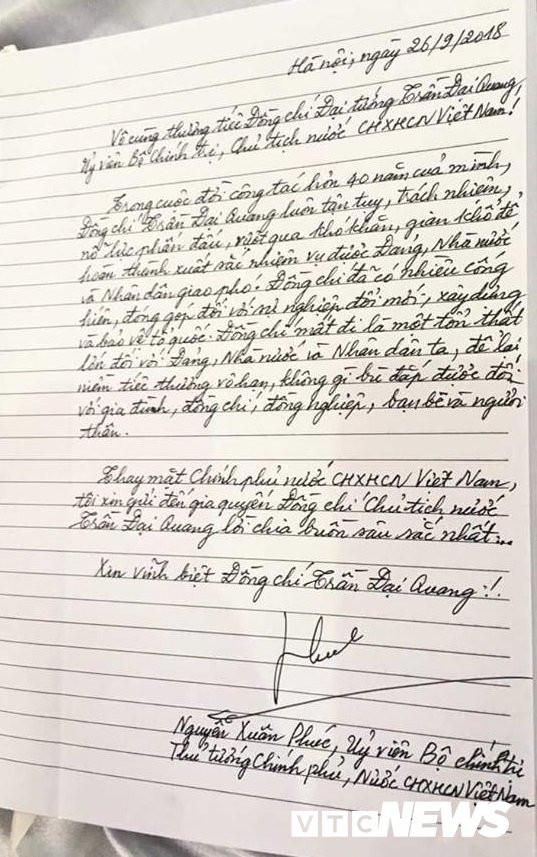 Hà nội, ngày 26/9/2018
Vô cùng thương tiếc Đồng chí Đại tướng Trần Đại Quang,
Uỷ viên Bộ Chính trị, Chủ tịch nước CHXHCN Việt Nam!
Trong cuộc đời công tác hơn 40 năm của mình,
Đồng chí Trần Đại Quang luôn tận tuỵ, trách nhiệm,
nỗ lực phấn đấu, vượt qua khó khăn, gian khổ để
hoàn thành xuất sắc nhiệm vụ được Đảng, Nhà nước
và Nhân dân giao phó. Đồng chí đã có nhiều cống
hiến, đóng góp đối với sự nghiệp đổi mới, xây dựng
và bảo vệ tổ quốc. Đồng chí mất đi là một tổn thất
lớn đối với Đảng, Nhà nước và Nhân dân ta, để lại
niềm tiếc thương vô hạn, không gì bù đắp được đối
với gia đình, đồng chí, đồng nghiệp, bạn bè và người
thân.
Thay mặt Chính phủ nước CHXHCN Việt Nam,
tôi xin gửi đến gia quyến Đồng chí Chủ tịch nước
Trần Đại Quang lời chia buồn sâu sắc nhất...
Xin vĩnh biệt Đồng chí Trần Đại Quang!.
Phuc
Nguyễn Xuân Phúc, Uỷ viên Bộ chính trị
Thủ tướng Chính phủ, Nước CHXHCN Việt Nam
VTC NEWS